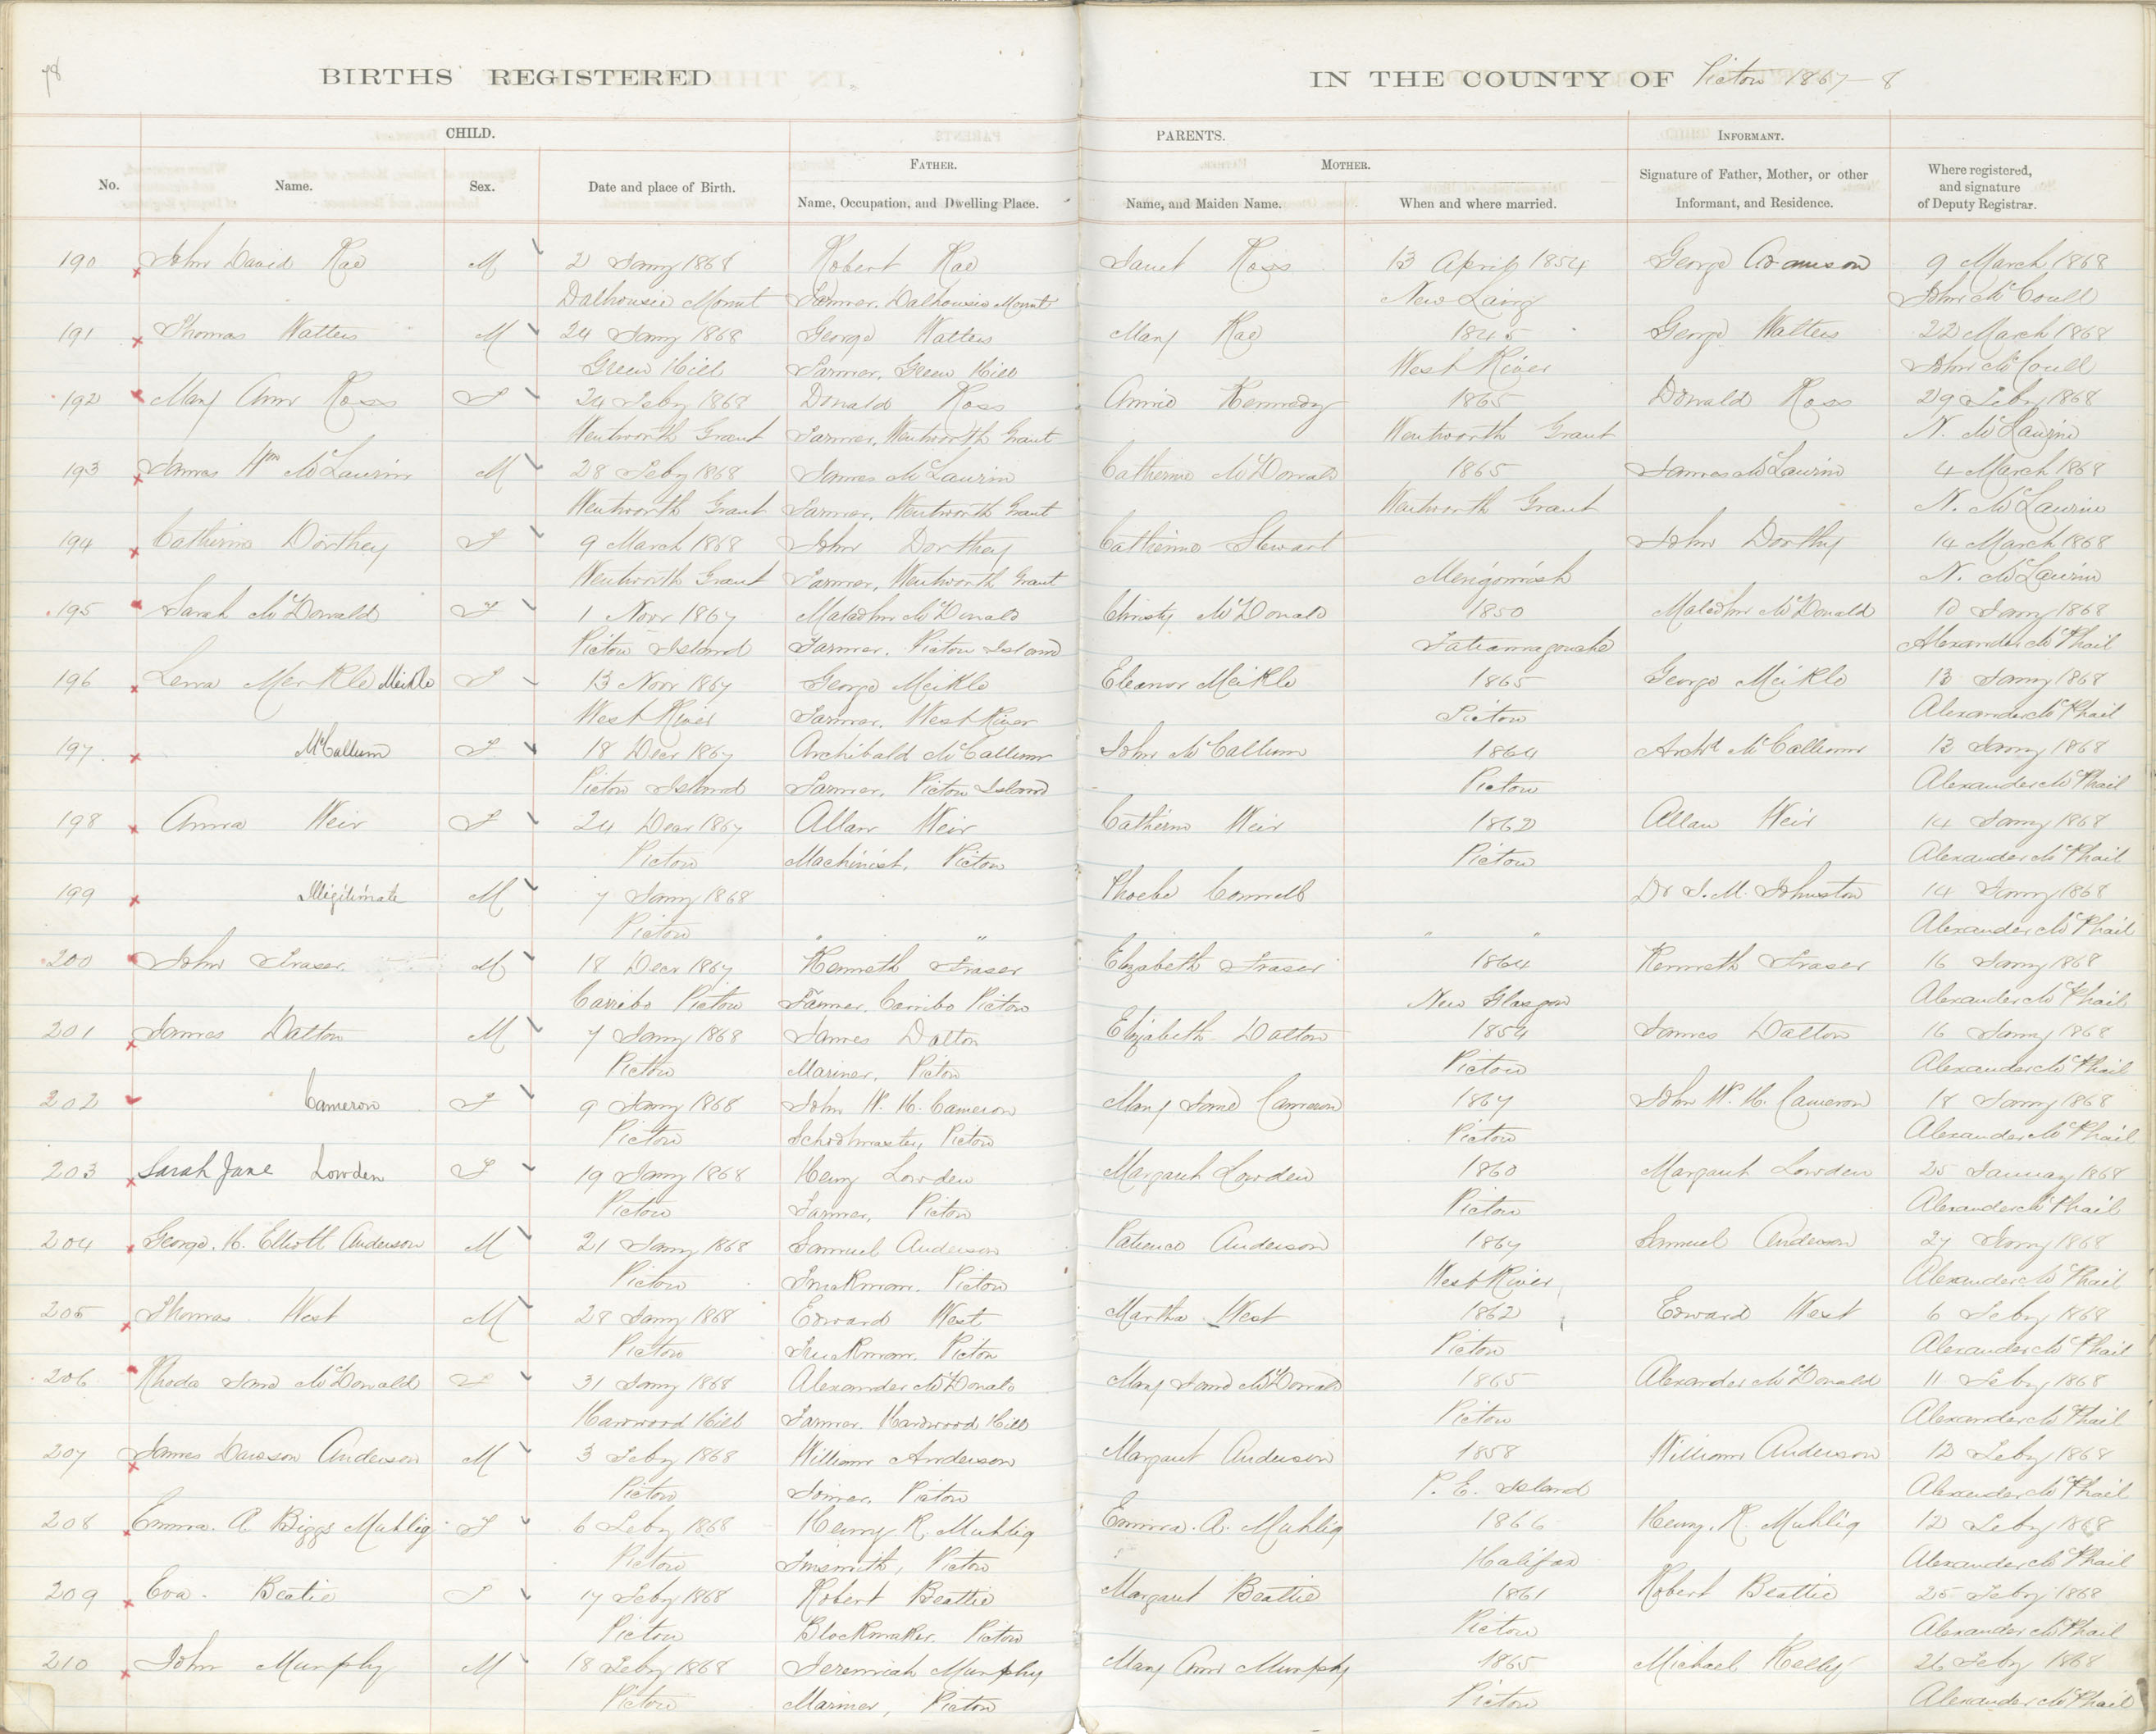 78
BIRTHS REGISTERED IN THE COUNTY OF Pictou 1867-8
CHILD. PARENTS. INFORMANT.
FATHER. MOTHER.
No. Name. Sex. Date and place of Birth. Name, Occupation, and Dwelling Place. Name, and Maiden Name. When and where married. Signature of Father, Mother, or other Informant, and Residence. Where registered, and signature of Deputy Registrar.
190 John David Rae M 2 Jany 1868 Robert Rae Janet Ross 13 April 1854 George 9 March 1868
Dalhousie Mount Farmer. Dalhousie Mount New Lairg John McCoull
191 Thomas Watters M 24 Jany 1868 George Watters Mary Rae 1845 George Watters 22 March 1868
Green Hill Farmer, Green Hill West River John McCoull
192 Mary Ann Ross F 24 Feby 1868 Donald Ross Annie Kennedy 1865 Donald Ross 29 Feby 1868
Wentworth Grant Farmer, Wentworth Grant Wentworth Grant N. McLaurin
193 James Wm McLaurin M 28 Feby 1868 James McLaurin Catherine McDonald 1865 James McLaurin 4 March 1868
Wentworth Grant Farmer, Wentworth Grant Wentworth Grant N. McLaurin
194 Catherine Dorthey F 9 March 1868 John Dorthey Catherine Stewart John Dorthy 14 March 1868
Wentworth Grant Farmer, Wentworth Grant Merigomish N. McLaurin
195 Sarah McDonald F 1 Novr 1867 Malcolm McDonald Christy McDonald 1850 Malcolm McDonald 10 Jany 1868
Pictou Island Farmer. Pictou Island Tatamagouche Alexander McPhail
196 Lena Merkle Meikle F 13 Novr 1867 George Meikle Eleanor Meikle 1865 George Meikle 13 Jany 1868
West River Farmer. West River Pictou Alexander McPhail
197 McCallum F 18 Decr 1867 Archibald McCallum John McCallum 1864 Archd McCallum 13 Jany 1868
Pictou Island Farmer. Pictou Island Pictou Alexander McPhail
198 Anna Weir F 24 Decr 1867 Allan Weir Catherine Weir 1862 Allan Weir 14 Jany 1868
Pictou Machinist. Pictou Pictou Alexander McPhail
199 Illegitimate M 7 Jany 1868 Phoebe Connell Dr J. M. Johnston 14 Jany 1868
Pictou " " " " Alexander McPhail
200 John Fraser M 18 Decr 1867 Kenneth Fraser Elizabeth Fraser 1864 Kenneth Fraser 16 Jany 1868
Carribo Pictou Farmer, Carribo Pictou New Glasgow Alexander McPhail
201 James Dalton M 7 Jany 1868 James Dalton Elizabeth Dalton 1854 James Dalton 16 Jany 1868
Pictou Mariner. Pictou Pictou Alexander McPhail
202 Cameron F 9 Jany 1868 John W. H. Cameron Mary Jane Cameron 1867 John W. H. Cameron 18 Jany 1868
Pictou Schoolmaster, Pictou Pictou Alexander McPhail
203 Sarah Jane Lowden F 19 Jany 1868 Henry Lowden Margaret Lowden 1860 Margaret Lowden 25 January 1868
Pictou Farmer, Pictou Pictou Alexander McPhail
204 George. H. Elliott Anderson M 21 Jany 1868 Samuel Anderson Patience Anderson 1867 Samuel Anderson 27 Jany 1868
Pictou Truckman. Pictou West River Alexander McPhail
205 Thomas West M 28 Jany 1868 Edward West Martha West 1862 Edward West 6 Feby 1868
Pictou Truckman. Pictou Pictou Alexander McPhail
206 Rhoda Jane McDonald F 31 Jany 1868 Alexander McDonald Mary Jane McDonald 1865 Alexander McDonald 11 Feby 1868
Hardwood Hill Farmer. Hardwood Hill Pictou Alexander McPhail
207 James Dawson Anderson M 3 Feby 1868 William Anderson Margaret Anderson 1858 William Anderson 12 Feby 1868
Pictou Joiner. Pictou P. E. Island Alexander McPhail
208 Emma. A. Biggs Muhlig F 6 Feby 1868 Henry R. Muhlig Emma. A. Muhlig 1866 Henry. R. Muhlig 12 Feby 1868
Pictou Tinsmith, Pictou Halifax Alexander McPhail
209 Eva. Beatie F 17 Feby 1868 Robert Beattie Margaret Beattie 1861 Robert Beattie 25 Feby 1868
Pictou Blockmaker. Pictou Pictou Alexander McPhail
210 John Murphy M 18 Feby 1868 Jeremiah Murphy Mary Ann Murphy 1865 Michael Kelly 26 Feby 1868
Pictou Mariner, Pictou Pictou Alexander McPhail